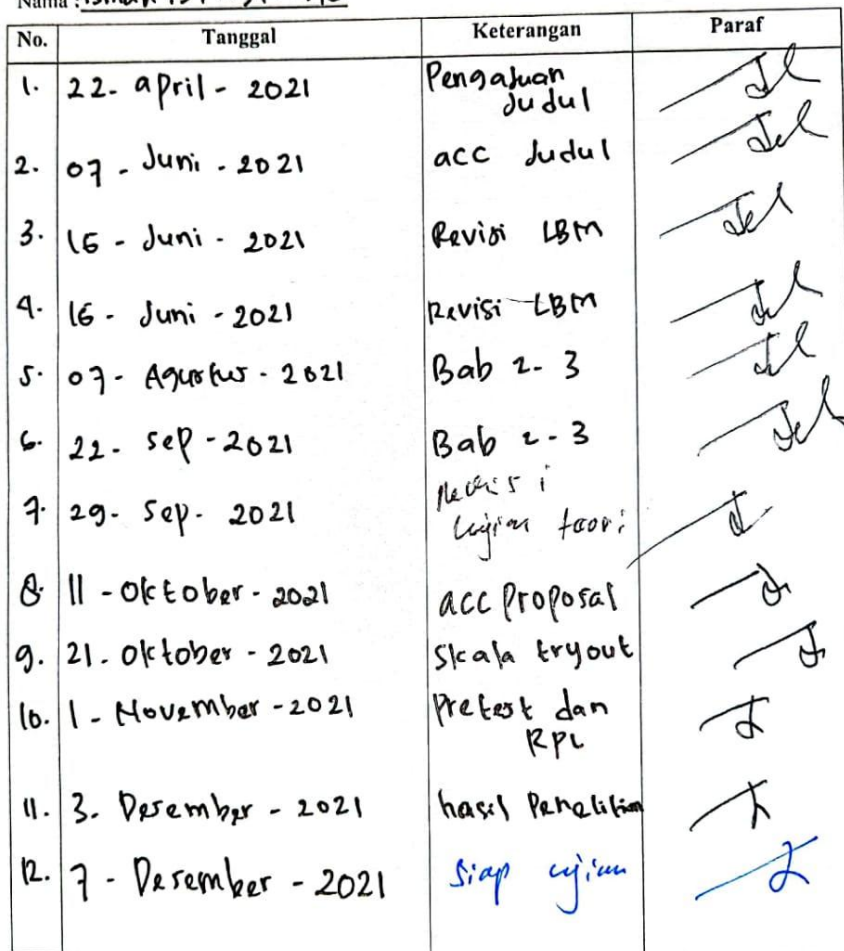 Nama :
No. Tanggal Keterangan Paraf
1. 22- april - 2021 Pengajuan
Judul
2. 07 - Juni - 2021 acc Judul
3. 16 - Juni - 2021 Revisi LBM
4. 16 - Juni - 2021 Revisi LBM
5. 07 - Agustus - 2021 Bab 2-3
6. 22- sep - 2021 Bab 2-3
7. 29- sep- 2021 Revisi
kajian teori
8. 11 - Oktober - 2021 acc proposal
9. 21. Oktober - 2021 Skala tryout
10. 1 - November - 2021 Pretest dan
RPL
11. 3. Desember - 2021 hasil Penelitian
12. 7 - Desember - 2021 Siap ujian